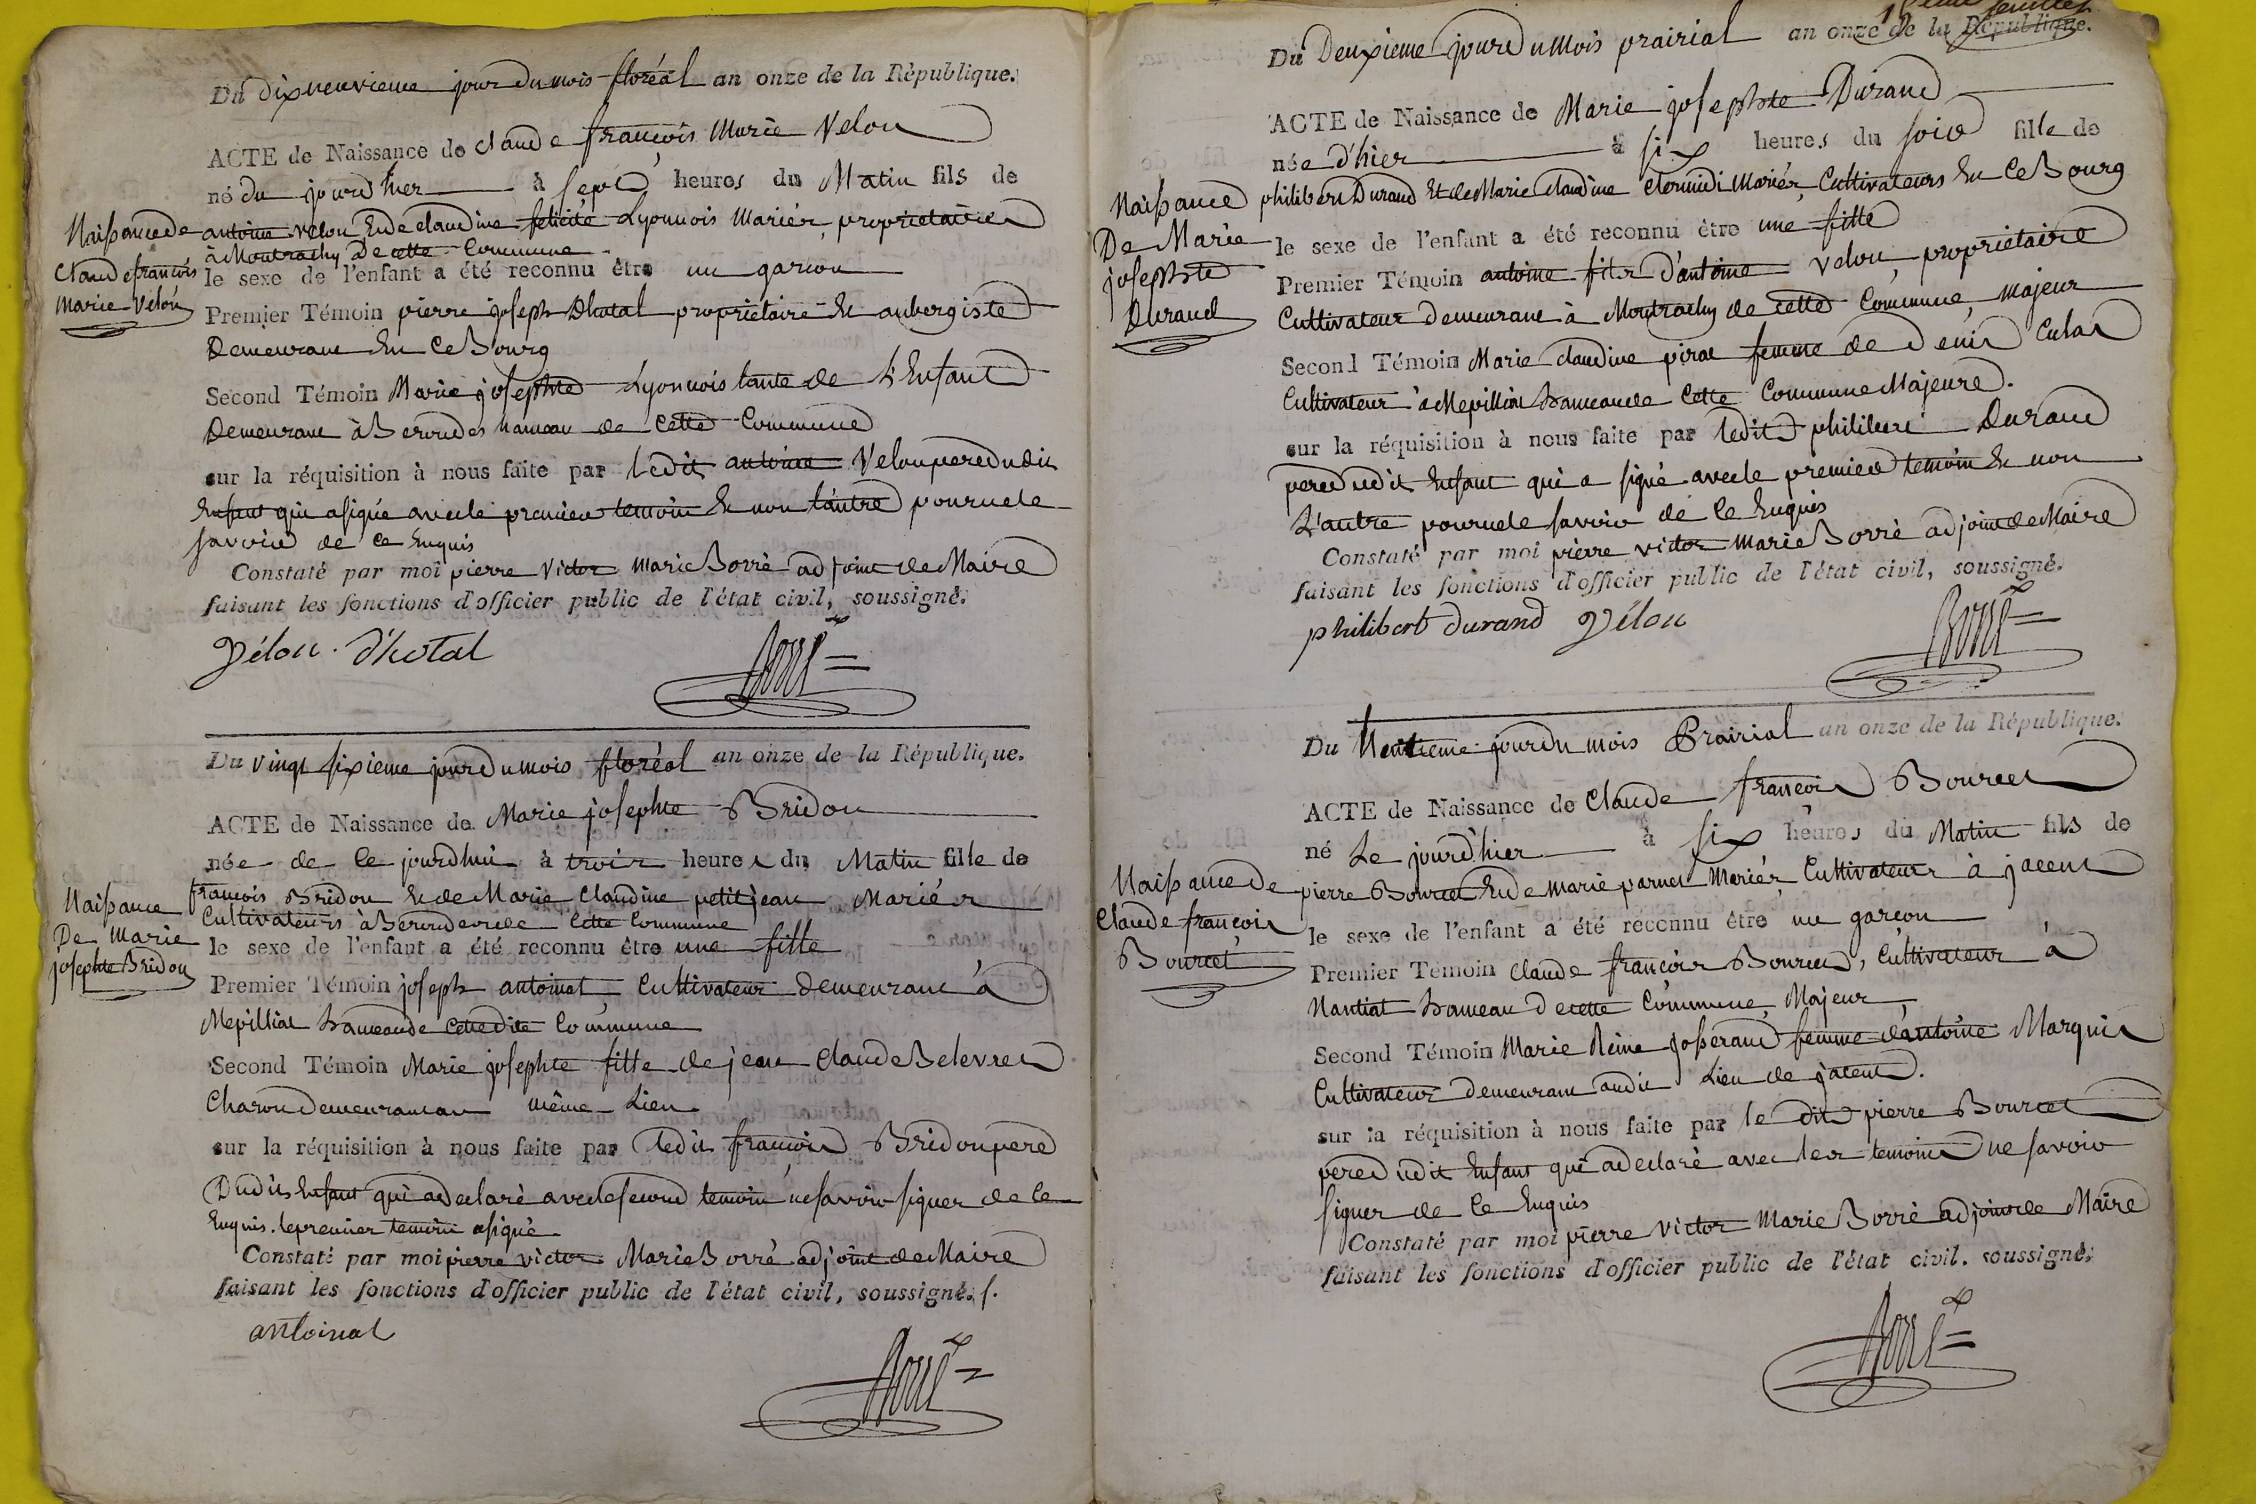 Du dixneuvieme jour du mois floréal an onze de la République.
ACTE de Naissance de claude françois Marie Velon
né du jourd'hier à sept heures du Matin fils de
Naissance de
Claude francois
Marie Velon
antoine velon Et de claudine felicité Lyonnois Mariés, proprietaires
à Montrachy De cette Commune
le sexe de l'enfant a été reconnu être un garcon
Premier Témoin pierre joseph Dhotal propriétaire Et aubergiste
Demeurant En ce Bourg
Second Témoin Marie josephte Lyonnois tante de L'Enfant
Demeurant à Beroudes hameau de cette Commune
sur la réquisition à nous faite par ledit antoine Velon pere dudit
Enfant qui a signé avec le premier temoin Et non l'autre pour ne le
savoir de ce Enquis
Constaté par moi pierre victor marie Borré adjoint de Maire
faisant les fonctions d'officier public de l'état civil, soussigné.
Vélon. d'hotal
Borré
Du vingt sixieme jour du mois floréal an onze de la République.
ACTE de Naissance de Marie josephte Bridon
née de ce jourdhui à trois heures du Matin fille de
Naissance
De Marie
josephte Bridon
francois Bridon Et de Marie Claudine petitjean Mariés
Cultivateurs à Beroudes de cette Commune
le sexe de l'enfant a été reconnu être une fille
Premier Témoin joseph antoinat Cultivateur demeurant à
Mepilliat hameau de cette dite Commune
Second Témoin Marie josephte fille de jean Claude Belevret
Charon demeurant au même Lieu
sur la réquisition à nous faite par ledit francois Bridon pere
Dudit Enfant qui a declaré avec le second temoin ne savoir signer de ce
Enquis. le premier temoin a signé
Constaté par moi pierre victor Marie Borré adjoint de Maire
faisant les fonctions d'officier public de l'état civil, soussigné.
antoinat
Borré
Du Deuxieme jour du Mois prairial an onze de la République.
ACTE de Naissance de Marie josephte Durand
née d'hier à six heures du soir fille de
Naissance
De Marie
josephte
Durand
philibert Durand Et de Marie claudine Mariés Cultivateurs En ce Bourg
le sexe de l'enfant a été reconnu être une fille
Premier Témoin antoine fils d'antoine velon, propriétaire
Cultivateur demeurant à Montrachy de cette Commune, majeur
Second Témoin Marie claudine femme de denis
Cultivateur à Mepilliat hameau de cette Commune Majeure.
sur la réquisition à nous faite par ledit philibert Durand
pere dudit Enfant qui a signé avec le premier temoin Et non
L'autre pour ne le savoir de ce Enquis
Constaté par moi pierre victor marie Borré adjoint de Maire
faisant les fonctions d'officier public de l'état civil, soussigné.
philibert durand Vélon
Borré
Du trentieme jour du mois Prairial an onze de la République.
ACTE de Naissance de Claude françois Bourcet
né Le jourd'hier à six heures du Matin fils de
Naissance De
Claude françois
Bourcet
pierre Bourcet Et de marie Mariés Cultivateurs à jacent
le sexe de l'enfant a été reconnu être un garcon
Premier Témoin claude francois Bourcet, Cultivateur à
Nantiat hameau de cette Commune, Majeur
Second Témoin Marie Reine josserand femme d'antoine Marquis
Cultivateur demeurant audit Lieu de jacent.
sur la réquisition à nous faite par le dit pierre Bourcet
pere dudit Enfant qui a declaré avec les temoins ne savoir
signer de ce Enquis
Constaté par moi pierre victor Marie Borré adjoint de Maire
faisant les fonctions d'officier public de l'état civil. soussigné.
Borré